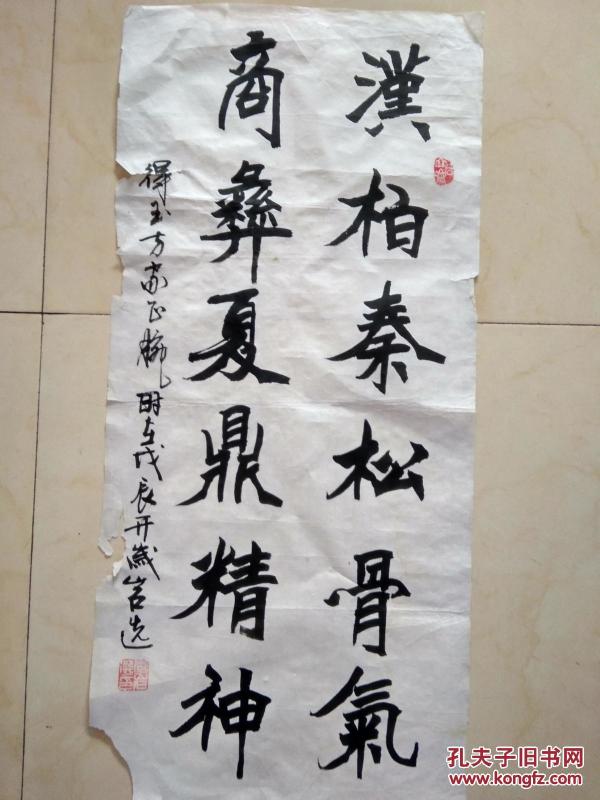 漢柏秦松骨氣
商彝夏鼎精神
得玉方家正腕時在戊辰開歲岩选
孔夫子旧书网
www.kongfz.com